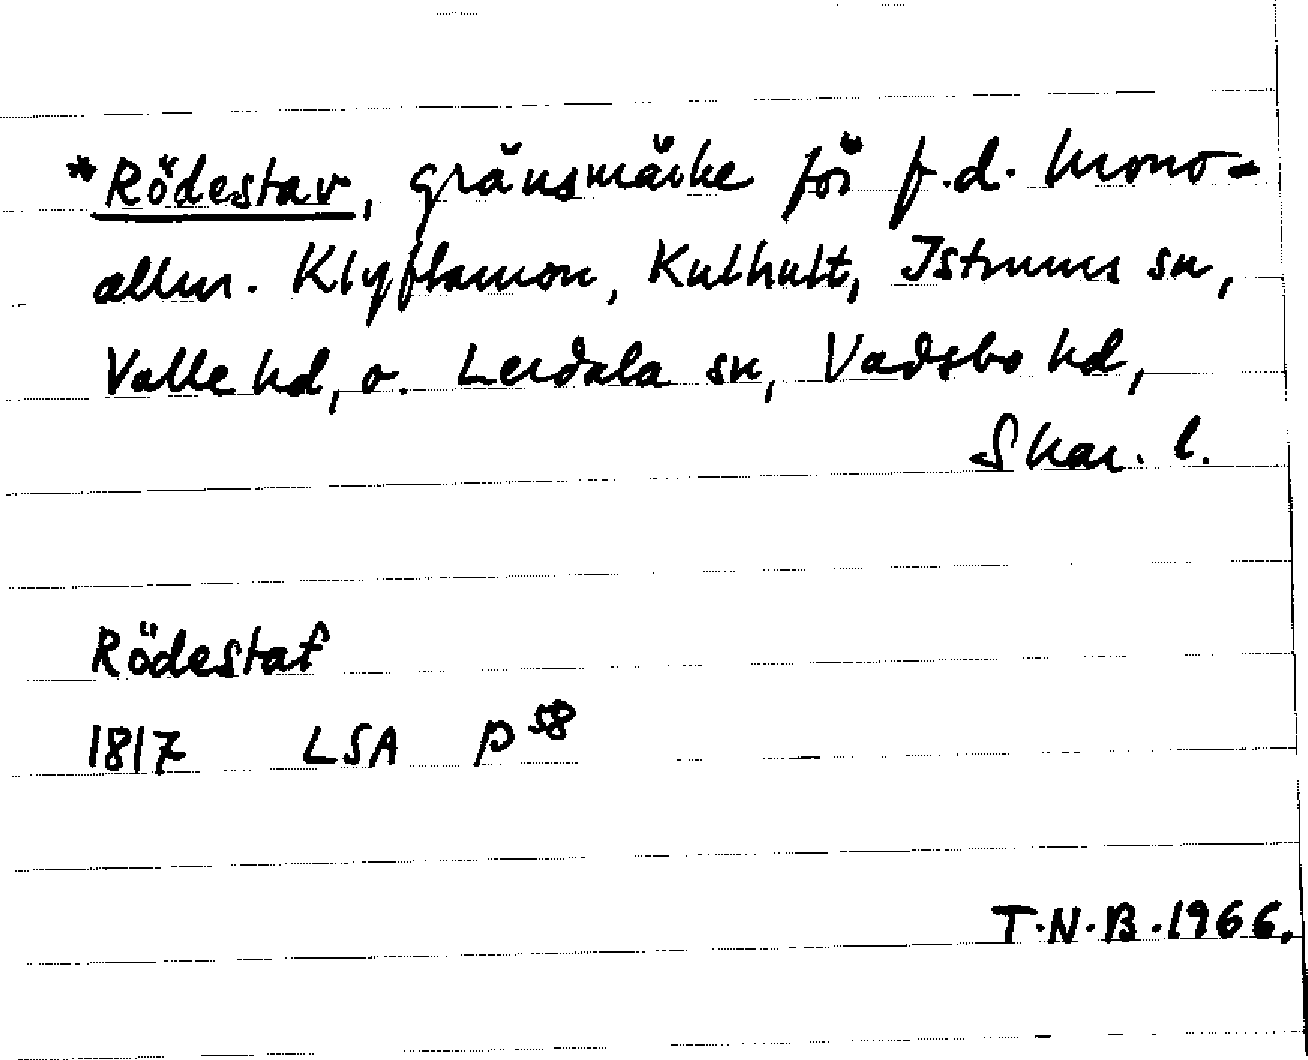 *Rödestav, gränsmärke för f.d. krono-
allm. Klyftamon, Kulhult, Istrums sn,
Valle hd, o. Lerdala sn, Vadsbo hd,
Skar. l.
Rödestaf
1817 LSA P 58
T.N.B. 1966.